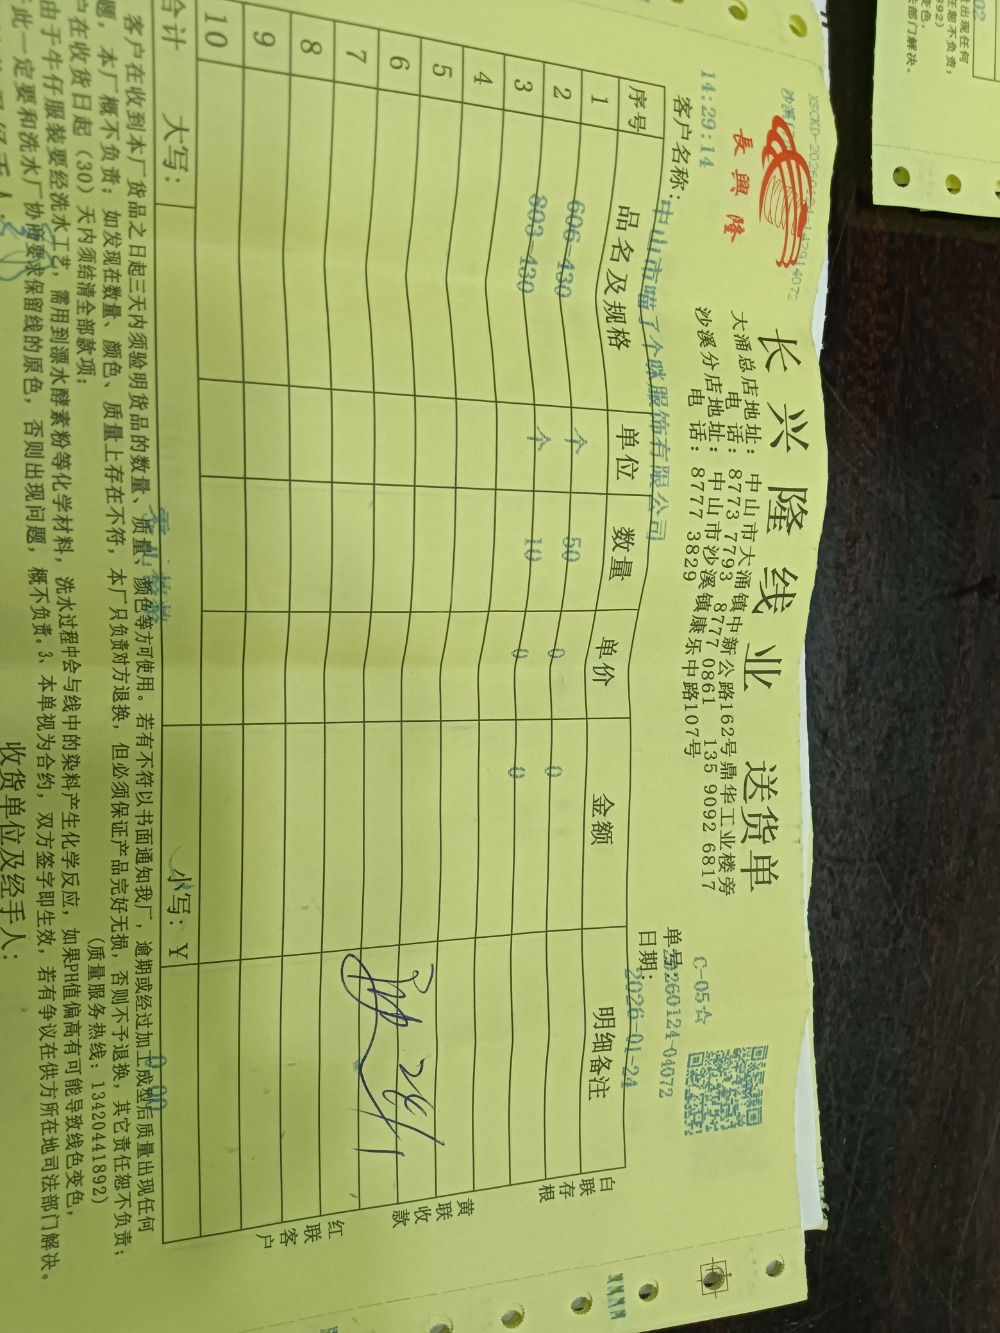 XSCKD-20260124-142914072
長興隆
长兴隆线业 送货单
大涌总店地址：中山市大涌镇中新公路162号鼎华工业楼旁
电 话：8773 7793 8777 0861 135 9092 6817
沙溪分店地址：中山市沙溪镇康乐中路107号
电 话：8777 3829
C-05☆
14:29:14
单号：20260124-04072
客户名称：中山市喵了个咪服饰有限公司
日期：2026-01-24
序号 品名及规格 单位 数量 单价 金额 明细备注
1 606-430 个 50 0 0
2 803-430 个 10 0 0
3
4
5
6
7
8
9
10
合计 大写：零元整 小写：￥ 0.00
白联存根
黄联收款
红联客户
客户在收到本厂货品之日起三天内须验明货品的数量、质量、颜色等方可使用。若有不符以书面通知我厂，逾期或经过加工成型后质量出现任何
题，本厂概不负责；如发现在数量、颜色、质量上存在不符，本厂只负责对方退换，但必须保证产品完好无损，否则不予退换，其它责任恕不负责；
在收货日起（30）天内须结清全部款项；
(质量服务热线：13420441892)
由于牛仔服装要经洗水工艺，需用到漂水酵素粉等化学材料，洗水过程中会与线中的染料产生化学反应，如果PH值偏高有可能导致线色变色，
此一定要和洗水厂协商要求保留线的原色，否则出现问题，概不负责。3、本单视为合约，双方签字即生效，若有争议在供方所在地司法部门解决。
收货单位及经手人：
出现任何
任恕不负责；
变色，
部门解决。